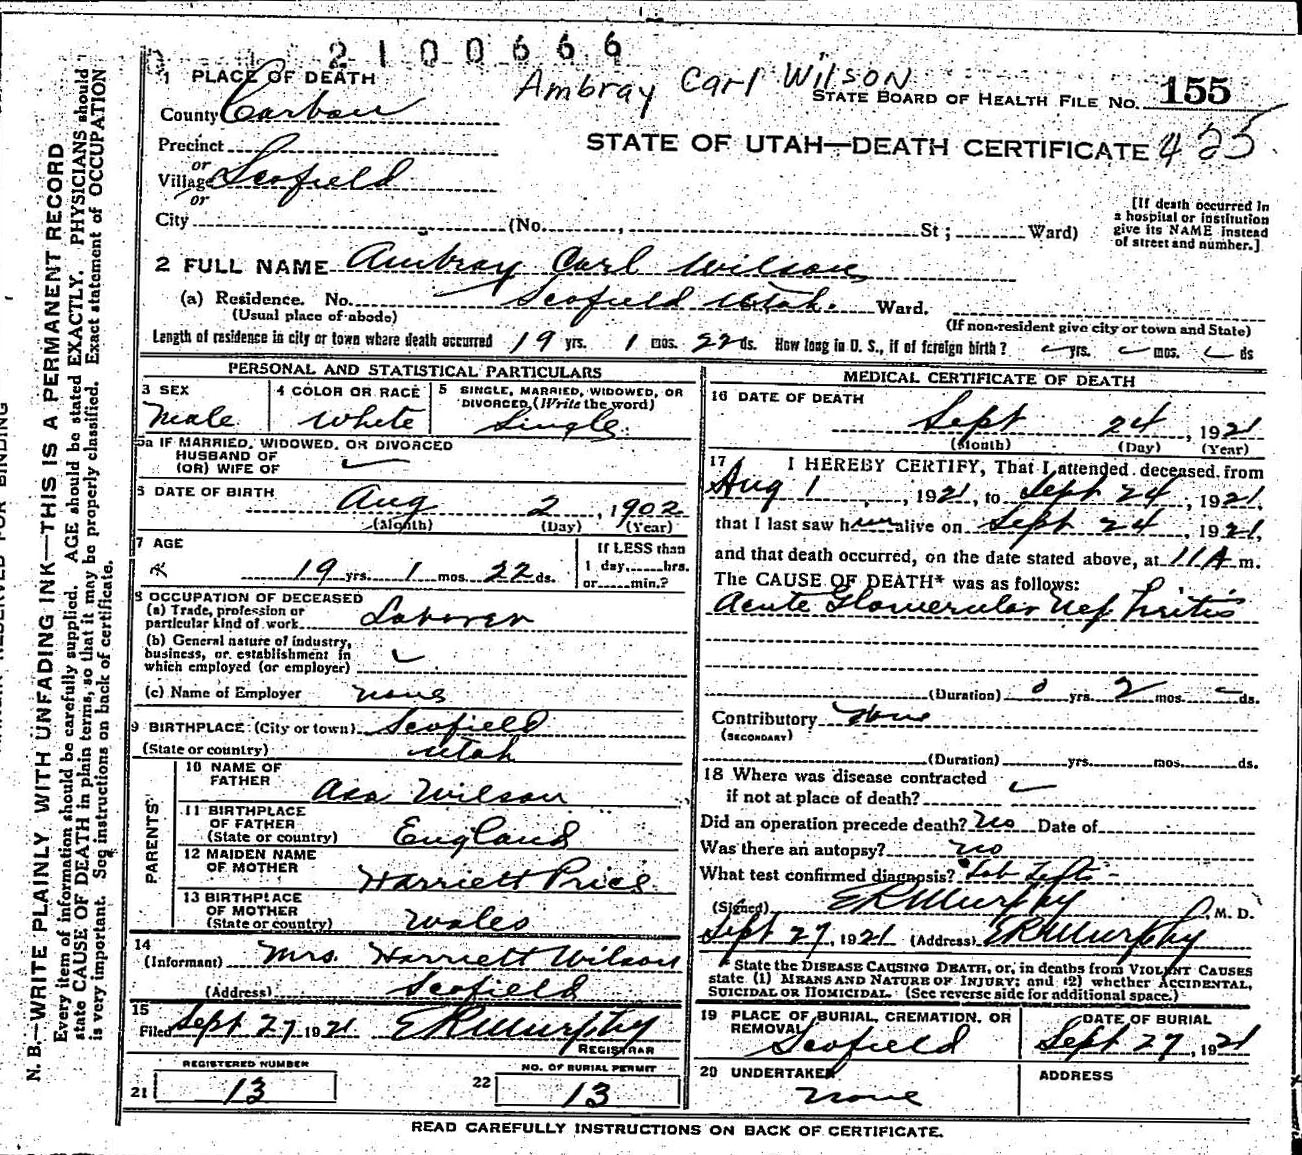 2100666
Ambray Carl Wilson
1 PLACE OF DEATH
STATE BOARD OF HEALTH FILE NO. 155
County Carbon
STATE OF UTAH—DEATH CERTIFICATE 425
Precinct
or
Village Scofield
or
City (No. , St ; Ward)
[If death occurred in
a hospital or institution
give its NAME instead
of street and number.]
2 FULL NAME Ambray Carl Wilson
(a) Residence. No. Scofield Utah. Ward.
(Usual place of abode)
(If non-resident give city or town and State)
Length of residence in city or town where death occurred 19 yrs. 1 mos. 22 ds. How long in U. S., if of foreign birth? yrs. mos. ds
PERSONAL AND STATISTICAL PARTICULARS
3 SEX
Male
4 COLOR OR RACE
White
5 SINGLE, MARRIED, WIDOWED, OR
DIVORCED (Write the word)
Single
5a IF MARRIED, WIDOWED, OR DIVORCED
HUSBAND OF
(OR) WIFE OF
6 DATE OF BIRTH Aug 2, 1902
(Month) (Day) (Year)
7 AGE
19 yrs. 1 mos. 22 ds.
If LESS than
1 day, hrs.
or min.?
8 OCCUPATION OF DECEASED
(a) Trade, profession or
particular kind of work Laborer
(b) General nature of industry,
business, or establishment in
which employed (or employer)
(c) Name of Employer none
9 BIRTHPLACE (City or town) Scofield
(State or country) Utah
PARENTS
10 NAME OF
FATHER Asa Wilson
11 BIRTHPLACE
OF FATHER
(State or country) England
12 MAIDEN NAME
OF MOTHER Harriett Price
13 BIRTHPLACE
OF MOTHER
(State or country) Wales
14
(Informant) Mrs. Harriett Wilson
(Address) Scofield
15
Filed Sept 27 1921 E R Murphy
REGISTRAR
REGISTERED NUMBER
21 13
NO. OF BURIAL PERMIT
22 13
MEDICAL CERTIFICATE OF DEATH
16 DATE OF DEATH
Sept 24, 1921
(Month) (Day) (Year)
17 I HEREBY CERTIFY, That I attended deceased from
Aug 1, 1921, to Sept 24, 1921,
that I last saw him alive on Sept 24, 1921,
and that death occurred, on the date stated above, at 11 A m.
The CAUSE OF DEATH* was as follows:
Acute Glomerular Nephritis
(Duration) 0 yrs. 2 mos. ds.
Contributory None
(SECONDARY)
(Duration) yrs. mos. ds.
18 Where was disease contracted
if not at place of death?
Did an operation precede death? No Date of
Was there an autopsy? No
What test confirmed diagnosis? Lab Tests
(Signed) E R Murphy M. D.
Sept 27, 1921 (Address) E R Murphy
*State the DISEASE CAUSING DEATH, or, in deaths from VIOLENT CAUSES
state (1) MEANS AND NATURE OF INJURY; and (2) whether ACCIDENTAL,
SUICIDAL OR HOMICIDAL. (See reverse side for additional space.)
19 PLACE OF BURIAL, CREMATION, OR
REMOVAL Scofield
DATE OF BURIAL
Sept 27, 1921
20 UNDERTAKER
None
ADDRESS
READ CAREFULLY INSTRUCTIONS ON BACK OF CERTIFICATE.
RESERVED FOR BINDING
N. B.—WRITE PLAINLY WITH UNFADING INK—THIS IS A PERMANENT RECORD
Every item of information should be carefully supplied. AGE should be stated EXACTLY. PHYSICIANS should
state CAUSE OF DEATH in plain terms, so that it may be properly classified. Exact statement of OCCUPATION
is very important. See instructions on back of certificate.